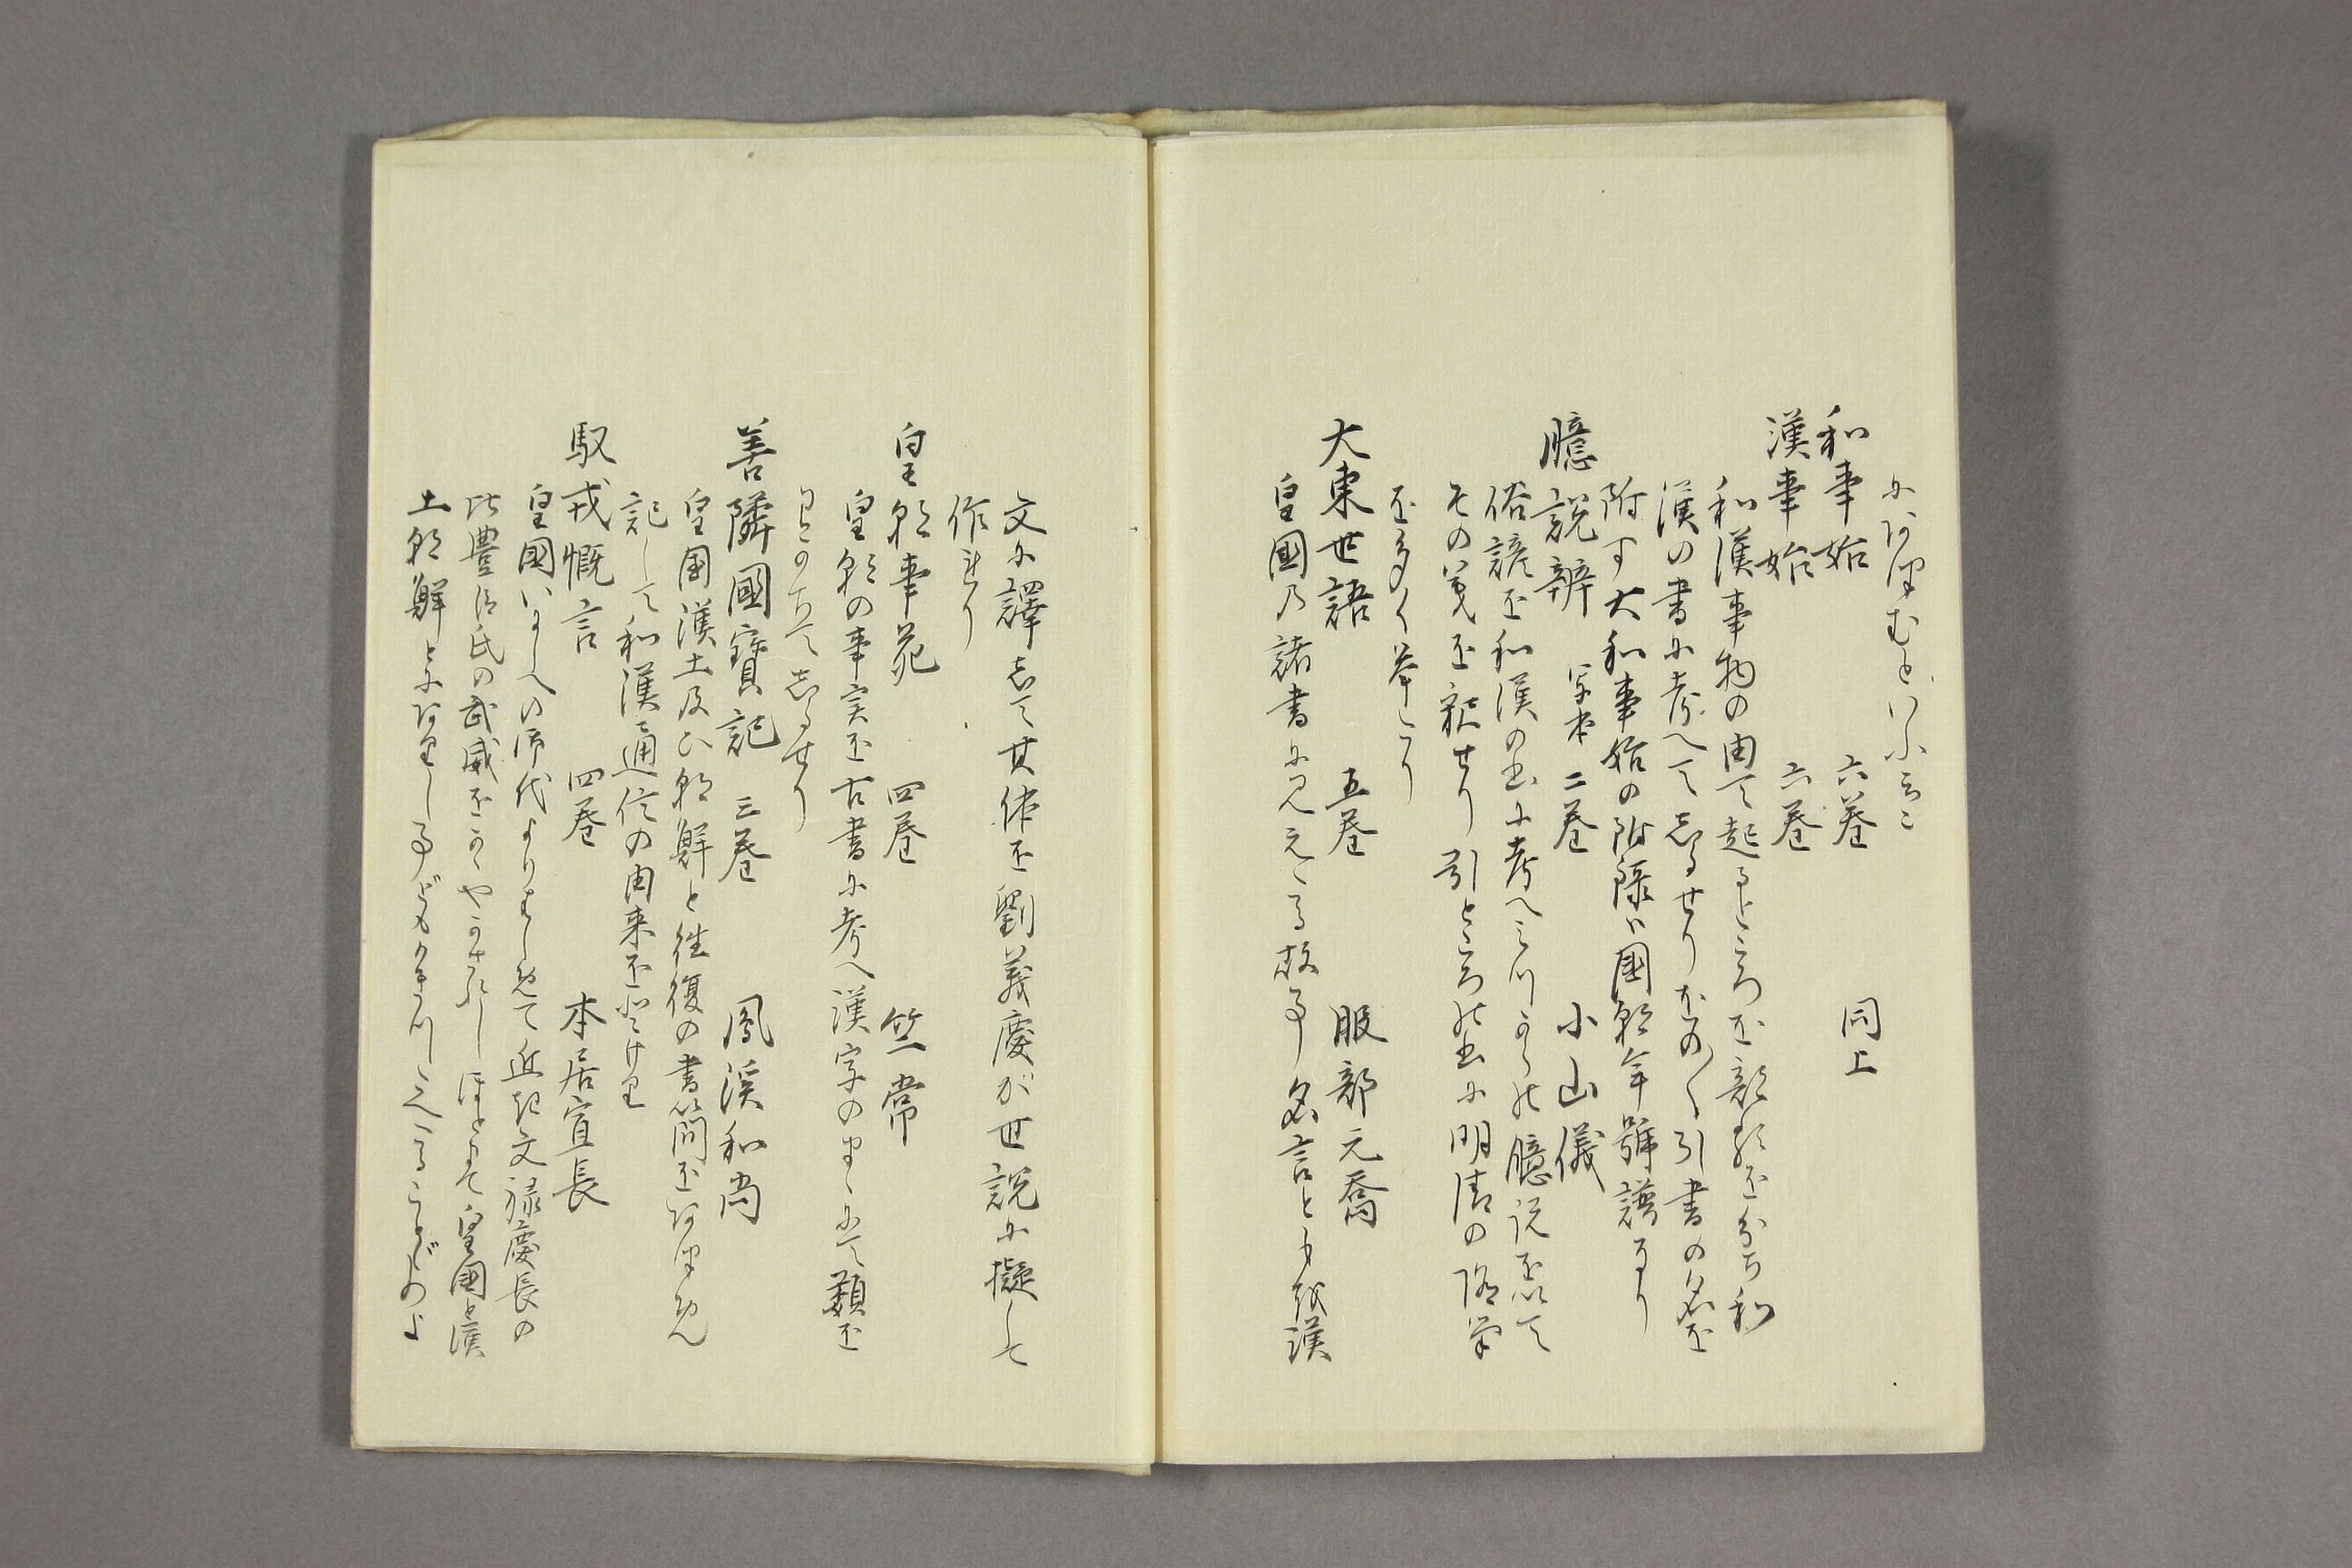 にあつむといふこと
和事始　六巻　同上
漢事始　六巻
和漢事物の由て起るところを部類を分ち和
漢の書に考へてしるせりおの〱引書の名を
附す大和事始の附録ハ国朝年号譜なり
臆説辨　写本二巻　小山儀
俗諺を和漢の書に考へミつからの臆説を以て
その義を釈せり引ところの書に明清の
を多く挙たり
大東世語　五巻　服部元喬
皇國乃諸書に見えたる故事名言ともを漢
文に譯して其体を劉義慶が世説に擬して
作れり
皇朝事苑　四巻　竺常
皇朝の事実を古書に考へ漢字のまゝにて類を
わかちてしるせり
善隣國寶記　三巻　鳳渓和尚
皇国漢土及ひ朝鮮と往復の書簡をあつめ
記して和漢通信の由来を
馭戎慨言　四巻　本居宣長
皇國いにしへの御代よりはしめて近き文禄慶長の
比豊臣氏の武威をかゝやかされしほとまて皇國と漢
土朝鮮とにありし事ともかきつらへたることどのよ